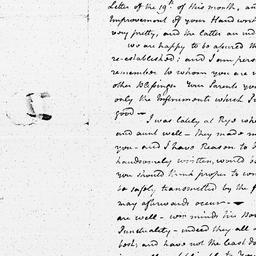 Letter of the 19th of this month, an
Improvement of your Hand writ
very pretty, and the latter an ind
we are happy to be assured th
re-established: and I am pers
remember to whom you are
other Blessings. Your Parents
only the Instruments which
good —
I was lately at Rye whe
and aunt well — They made m
you — and I have Reason to
handsomely written, would
you should think proper to con
be safely transmitted by the f
may afterwards occur —
are well — his
Punctuality — indeed they all
book; and have not the least d